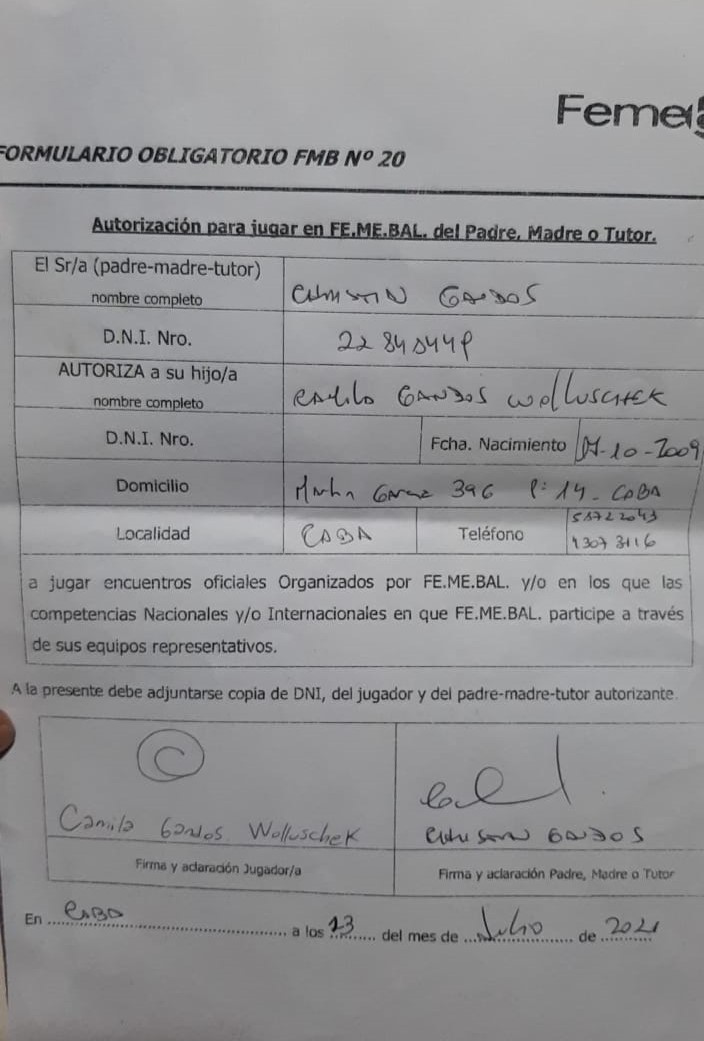 Feme
FORMULARIO OBLIGATORIO FMB Nº 20
Autorización para jugar en FE.ME.BAL. del Padre, Madre o Tutor.
El Sr/a (padre-madre-tutor)
nombre completo
D.N.I. Nro.
AUTORIZA a su hijo/a
nombre completo
Wolluschek
D.N.I. Nro.
Fcha. Nacimiento
-10-2009
Domicilio
396 P: 14 - CABA
Localidad
CABA
Teléfono
4307 3116
a jugar encuentros oficiales Organizados por FE.ME.BAL. y/o en los que las
competencias Nacionales y/o Internacionales en que FE.ME.BAL. participe a través
de sus equipos representativos.
A la presente debe adjuntarse copia de DNI, del jugador y del padre-madre-tutor autorizante.
C
Camila Gandos Wolluschek
Firma y aclaración Jugador/a
Firma y aclaración Padre, Madre o Tutor
En CABA a los 13 del mes de Julio de 2021